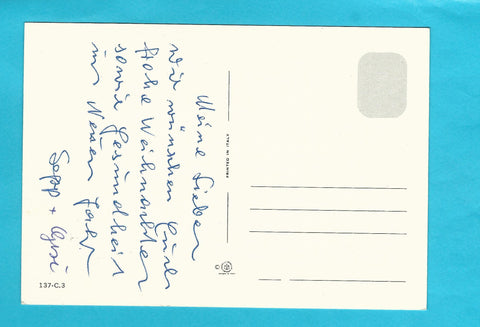 Meine Lieben
Wir wünschen Euch
frohe Weihnachten
sowie Gesundheit
im Neuen Jahr
Sepp +
PRINTED IN ITALY
©
137-C.3